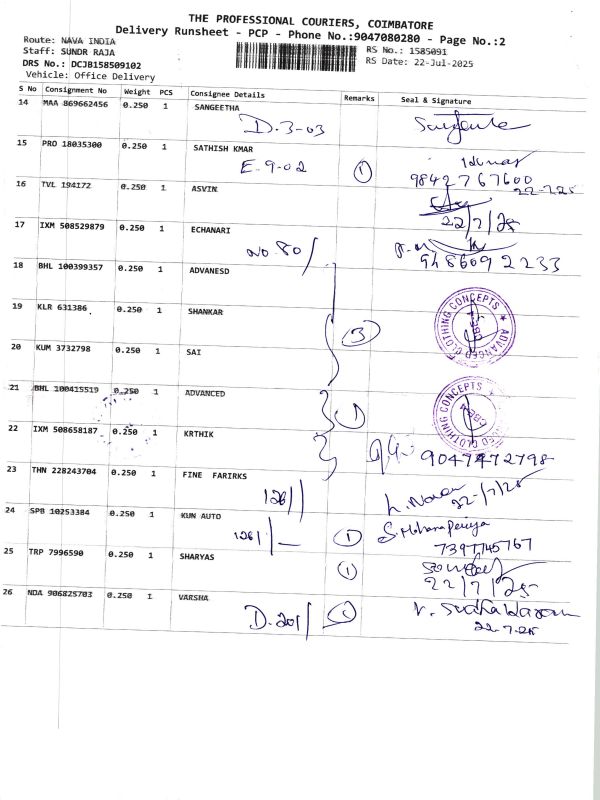 THE PROFESSIONAL COURIERS, COIMBATORE
Delivery Runsheet - PCP - Phone No.:9047080280 - Page No.:2
Route: NAVA INDIA
Staff: SUNDR RAJA
RS No.: 1585091
DRS No.: DCJB158509102
RS Date: 22-Jul-2025
Vehicle: Office Delivery
S No Consignment No Weight PCS Consignee Details Remarks Seal & Signature
14 MAA 869662456 0.250 1 SANGEETHA
D.3-03
15 PRO 18035300 0.250 1 SATHISH KMAR
E.9-02 1 9842767600
22-7-25
16 TVL 194172 0.250 1 ASVIN
22/7/25
17 IXM 508529879 0.250 1 ECHANARI
No.80/ 9486092233
18 BHL 100399357 0.250 1 ADVANESD
19 KLR 631386 0.250 1 SHANKAR
3 ADVANCED CLOTHING CONCEPTS
20 KUM 3732798 0.250 1 SAI
21 BHL 100415519 0.250 1 ADVANCED
1 CLOTHING CONCEPTS
22 IXM 508658187 0.250 1 KRTHIK
9047472798
23 THN 228243704 0.250 1 FINE FARIRKS
126// 22-/7/25
24 SPB 10253384 0.250 1 KUN AUTO
126/ 1 7397745767
25 TRP 7996590 0.250 1 SHARYAS
1 22/7/25
26 NDA 906825703 0.250 1 VARSHA
D.201/ 1 22-7-25